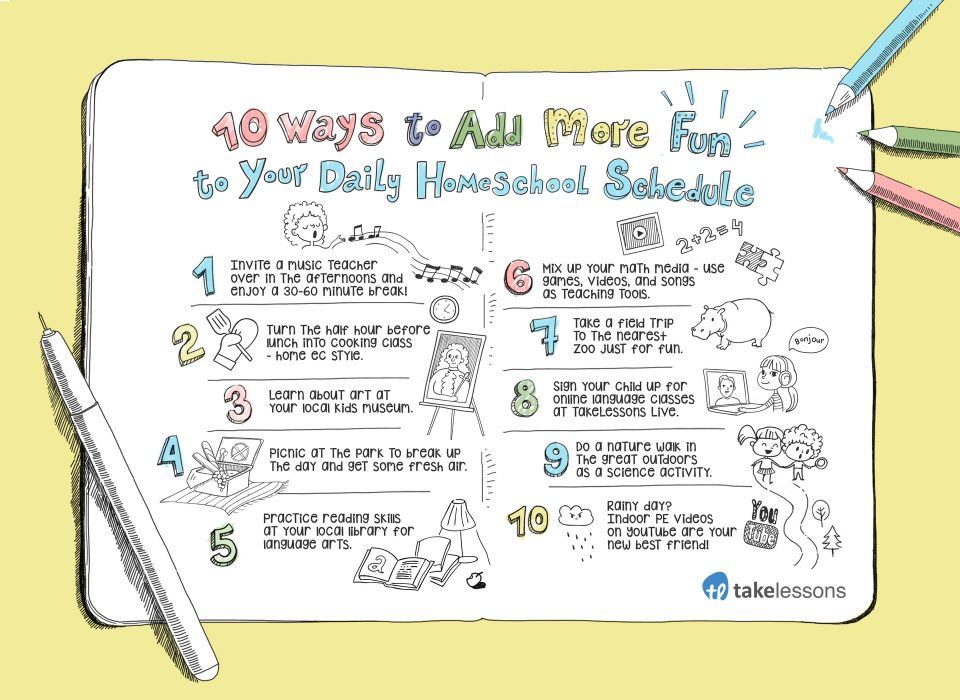 10 Ways to Add More Fun
to Your Daily Homeschool Schedule
1
Invite a music teacher
over in the afternoons and
enjoy a 30-60 minute break!
2
Turn the half hour before
lunch into cooking class
- home ec style.
3
Learn about art at
your local kids museum.
4
Picnic at the park to break up
the day and get some fresh air.
5
Practice reading skills
at your local library for
language arts.
a
6
2+2=4
Mix up your math media - use
games, videos, and songs
as teaching tools.
7
Take a field trip
to the nearest
zoo just for fun.
Bonjour
8
Sign your child up for
online language classes
at TakeLessons Live.
9
Do a nature walk in
the great outdoors
as a science activity.
10
Rainy day?
Indoor PE videos
on YouTube are your
new best friend!
You
Tube
tl takelessons